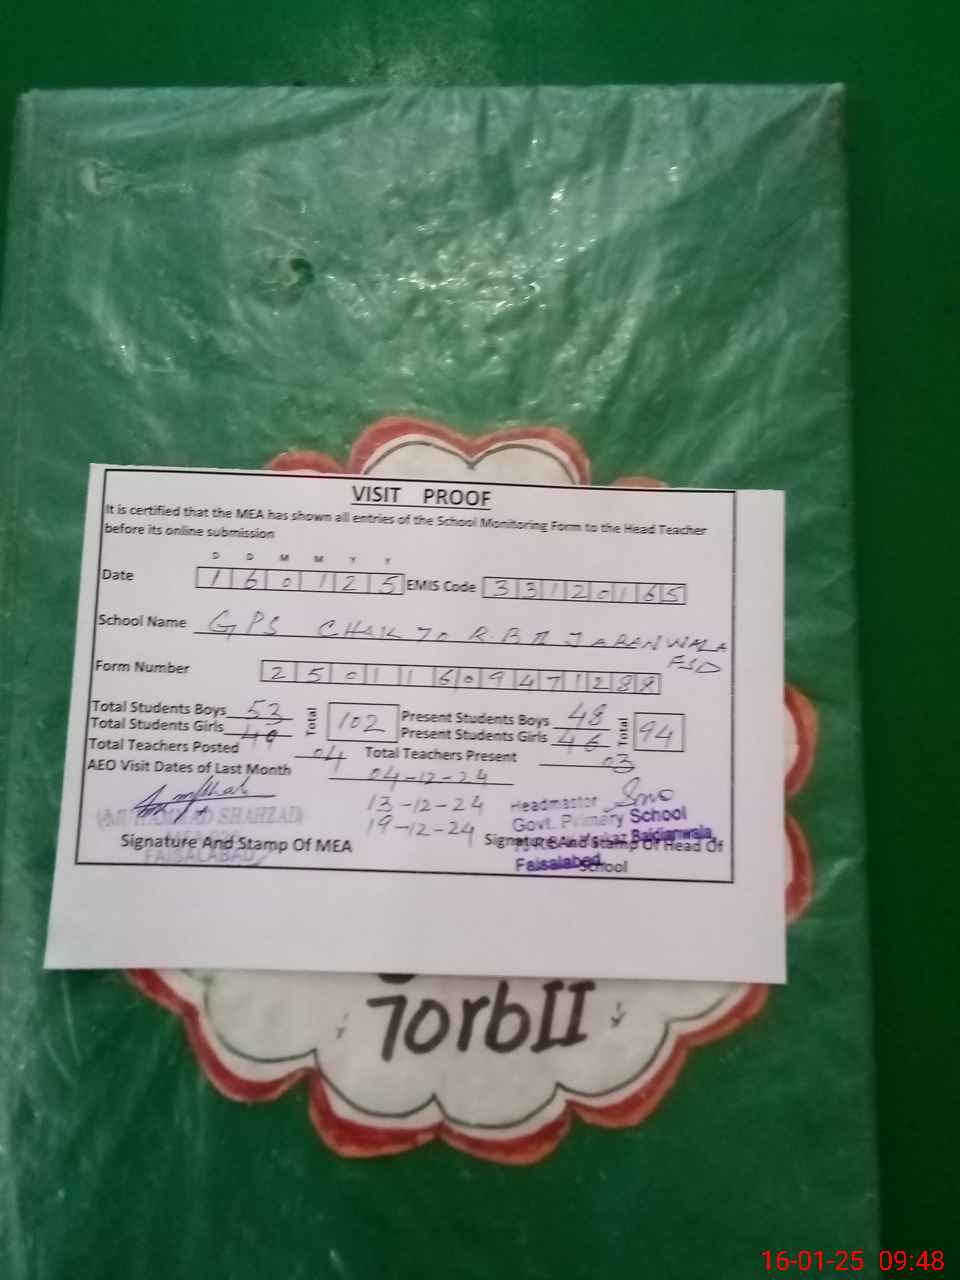 VISIT PROOF
It is certified that the MEA has shown all entries of the School Monitoring Form to the Head Teacher
before its online submission
D D M M Y Y
Date 160125 EMIS Code 33120165
School Name GPS CHAK 70 R.B II JARANWALA
FSD
Form Number 25011609471288
Total Students Boys 53 Total 102 Present Students Boys 48 Total 94
Total Students Girls 49 Present Students Girls 46
Total Teachers Posted 04 Total Teachers Present 03
AEO Visit Dates of Last Month 04-12-24
13-12-24
19-12-24
MUHAMMAD SHAHZAD
FAISALABAD
Signature And Stamp Of MEA
Headmaster
Govt. Primary School
Faisalabad
Signature And Stamp Of Head Of
School
70rbII
16-01-25 09:48